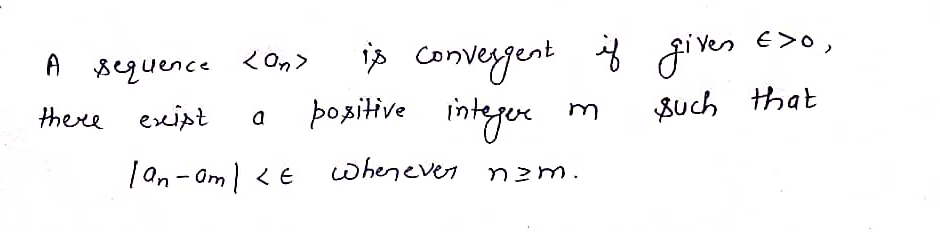 A sequence <an> is convergent if given ϵ>0,
there exist a positive integer m such that
|an-am| < ϵ whenever n≥m.